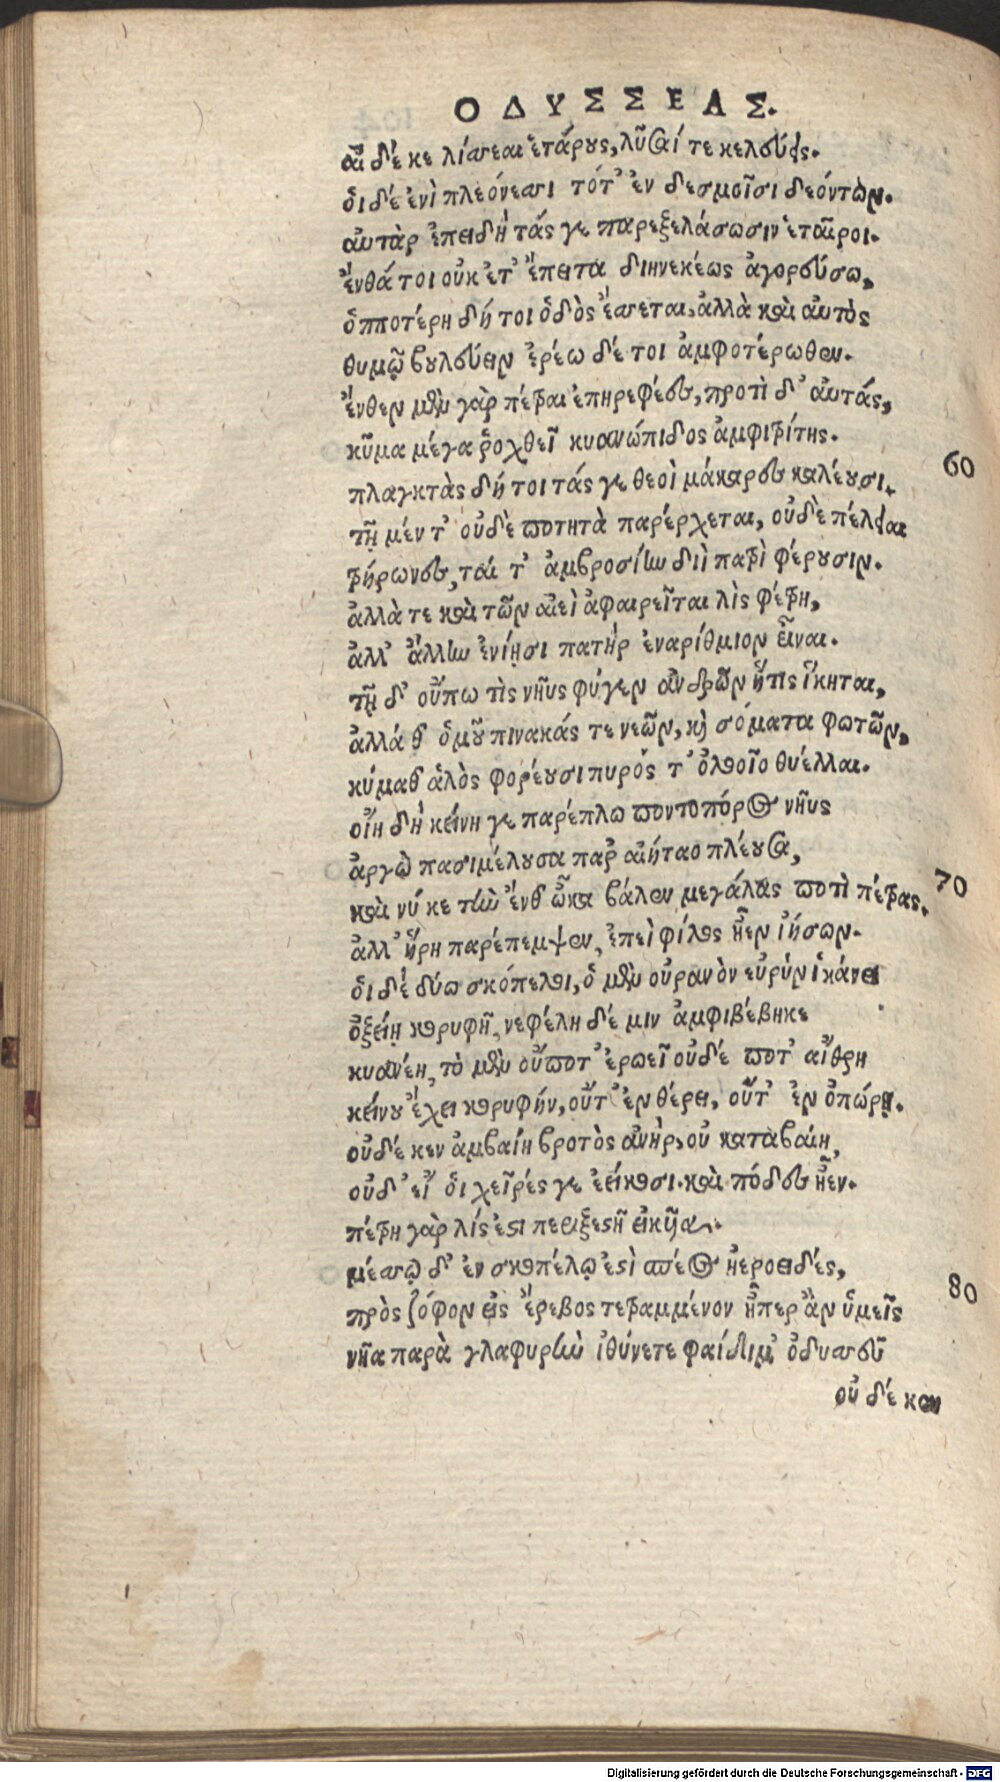 ΟΔΥΣΣΕΑΣ.
αἲ δέ κε λίσσεαι ἑτάρους, λῦσαί τε κελεύῃς.
ὁι δέ ἐνὶ πλεόνεσσι τότ' ἐν δεσμοῖσι δεόντων.
αὐτὰρ ἐπειδὴ τάς γε παρεξελάσωσιν ἑταῖροι.
ἔνθά τοι οὐκ ἔτ' ἔπειτα διηνεκέως ἀγορεύσω,
ὁπποτέρη δή τοι ὁδὸς ἔσσεται, ἀλλὰ καὶ αὐτὸς
θυμῷ βουλεύειν ἐρέω δέ τοι ἀμφοτέρωθεν.
ἔνθεν μὲν γὰρ πέτραι ἐπηρεφέες, προτὶ δ' αὐτάς,
κῦμα μέγα ῥοχθεῖ κυανώπιδος ἀμφιτρίτης.
60
πλαγκτὰς δή τοι τάς γε θεοὶ μάκαρες καλέουσι.
τῇ μέν τ' οὐδὲ ποτητὰ παρέρχεται, οὐδὲ πέλειαι
τρήρωνες, ταί τ' ἀμβροσίην διὶ πατρὶ φέρουσιν.
ἀλλὰ τε καὶ τῶν αἰεὶ ἀφαιρεῖται λὶς πέτρη,
ἀλλ' ἄλλην ἐνίησι πατὴρ ἐναρίθμιον εἶναι.
τῇ δ' οὔπω τὶς νηῦς φύγεν ἀνδρῶν ἥτις ἵκηται,
ἀλλάθ' ὁμοῦ πινακάς τε νεῶν, καὶ σόματα φωτῶν,
κύμαθ' ἁλὸς φορέουσι πυρός τ' ὀλοοῖο θυέλλαι.
οἴη δὴ κείνη γε παρέπλω ποντοπόρος νηῦς
ἀργὼ πασιμέλουσα παρ' αἰήταο πλέουσα,
70
καὶ νύ κε τὴν ἔνθ' ὦκα βάλεν μεγάλας ποτὶ πέτρας.
ἀλλ' ἥρη παρέπεμψεν, ἐπεὶ φίλος ἦεν ἰήσων.
ὁι δὲ δύω σκόπελοι, ὁ μὲν οὐρανὸν εὐρὺν ἱκάνει
ὀξείῃ κορυφῇ, νεφέλη δέ μιν ἀμφιβέβηκε
κυανέη, τὸ μὲν οὔποτ' ἐρωεῖ οὐδέ ποτ' αἴθρη
κείνου ἔχει κορυφήν, οὔτ' ἐν θέρει, οὔτ' ἐν ὀπώρῃ.
οὐδέ κεν ἀμβαίη βροτὸς ἀνὴρ, οὐ καταβαίη,
οὐδ' εἴ ὁι χεῖρές γε ἐείκοσι καὶ πόδες ἦεν.
πέτρη γὰρ λίς ἐστι περιξεστῇ εἰκῦα.
μέσσῳ δ' ἐν σκοπέλῳ ἐστὶ σπέος ἠεροειδές,
80
πρὸς ζόφον εἰς ἔρεβος τετραμμένον ἧπερ ἂν ὑμεῖς
νῆα παρὰ γλαφυρὴν ἰθύνετε φαίδιμ' ὀδυσσεῦ
οὐ δέ κεν
Digitalisierung gefördert durch die Deutsche Forschungsgemeinschaft - DFG